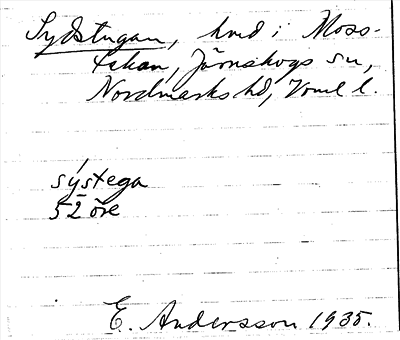 Sydstugan, hmd i Moss-
tekan, Järnskogs sn,
Nordmarks hd, Vrml l.
sýstega
52 öre
E. Andersson 1935.